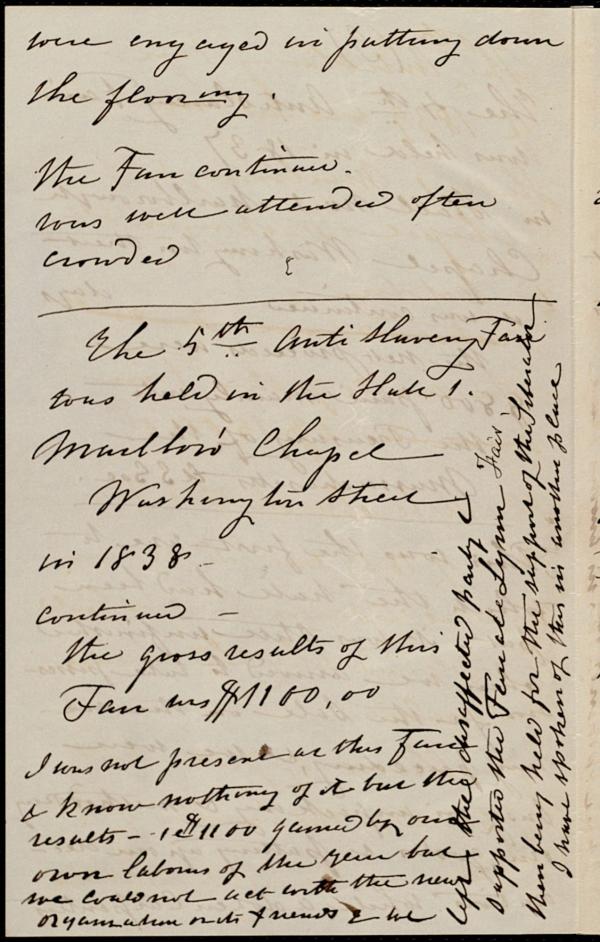 were engaged in putting down
the flooring.
the Fair continued.
was well attended often
crowded
The 5th Anti Slavery Fair
was held in the Hall 1.
Marlboro' Chapel
Washington Street
in 1838 -
continued -
the gross results of this
Fair was $1100,00
I was not present at this Fair
& know nothing of it but the
results - i e $1100 gained by our
own labours of the year but
we could not act with the new
organization or its friends & we
left the disaffected party &
supported the Female Lynn Fair
then being held for the support of the Liberator
I have spoken of this in another place